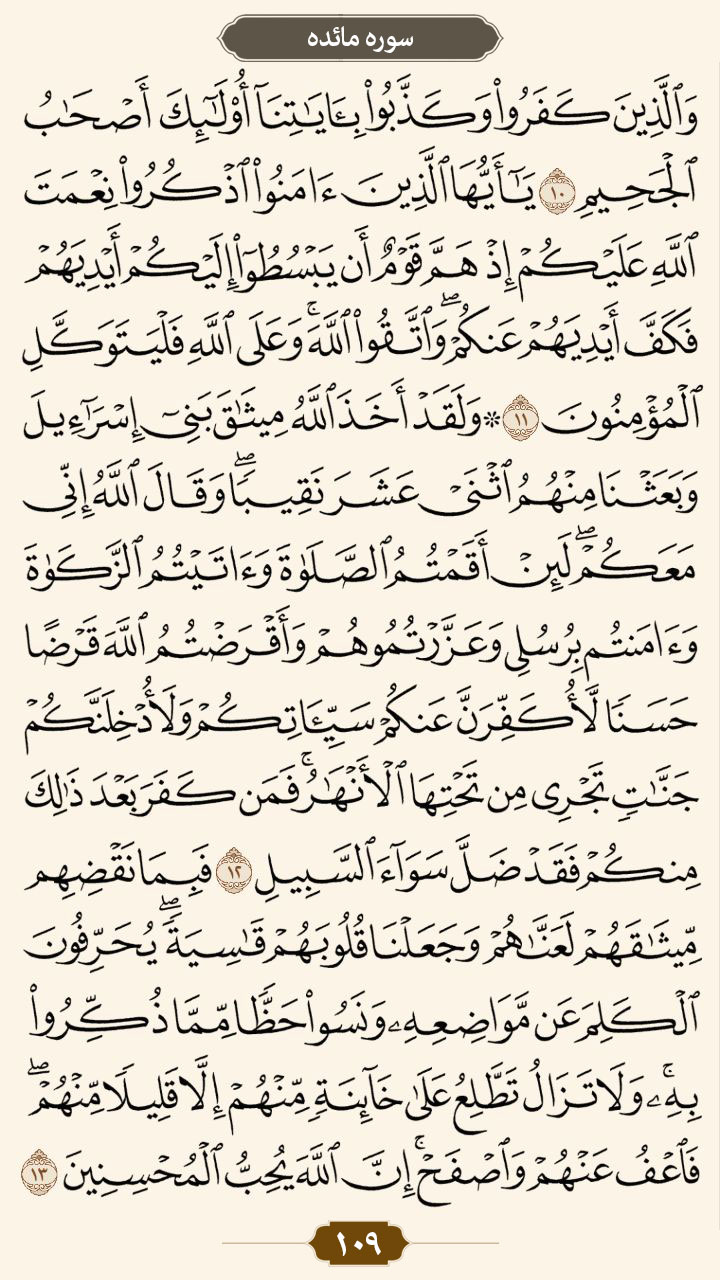 سوره مائده
وَٱلَّذِينَ كَفَرُوا۟ وَكَذَّبُوا۟ بِـَٔايَـٰتِنَآ أُو۟لَـٰٓئِكَ أَصْحَـٰبُ
ٱلْجَحِيمِ ١٠ يَـٰٓأَيُّهَا ٱلَّذِينَ ءَامَنُوا۟ ٱذْكُرُوا۟ نِعْمَتَ
ٱللَّهِ عَلَيْكُمْ إِذْ هَمَّ قَوْمٌ أَن يَبْسُطُوٓا۟ إِلَيْكُمْ أَيْدِيَهُمْ
فَكَفَّ أَيْدِيَهُمْ عَنكُمْ ۖ وَٱتَّقُوا۟ ٱللَّهَ ۚ وَعَلَى ٱللَّهِ فَلْيَتَوَكَّلِ
ٱلْمُؤْمِنُونَ ١١ ۞ وَلَقَدْ أَخَذَ ٱللَّهُ مِيثَـٰقَ بَنِىٓ إِسْرَٰٓءِيلَ
وَبَعَثْنَا مِنْهُمُ ٱثْنَىْ عَشَرَ نَقِيبًا ۖ وَقَالَ ٱللَّهُ إِنِّى
مَعَكُمْ ۖ لَئِنْ أَقَمْتُمُ ٱلصَّلَوٰةَ وَءَاتَيْتُمُ ٱلزَّكَوٰةَ
وَءَامَنتُم بِرُسُلِى وَعَزَّرْتُمُوهُمْ وَأَقْرَضْتُمُ ٱللَّهَ قَرْضًا
حَسَنًا لَّأُكَفِّرَنَّ عَنكُمْ سَيِّـَٔاتِكُمْ وَلَأُدْخِلَنَّكُمْ
جَنَّـٰتٍ تَجْرِى مِن تَحْتِهَا ٱلْأَنْهَـٰرُ ۚ فَمَن كَفَرَ بَعْدَ ذَٰلِكَ
مِنكُمْ فَقَدْ ضَلَّ سَوَآءَ ٱلسَّبِيلِ ١٢ فَبِمَا نَقْضِهِم
مِّيثَـٰقَهُمْ لَعَنَّـٰهُمْ وَجَعَلْنَا قُلُوبَهُمْ قَـٰسِيَةً ۖ يُحَرِّفُونَ
ٱلْكَلِمَ عَن مَّوَاضِعِهِۦ وَنَسُوا۟ حَظًّا مِّمَّا ذُكِّرُوا۟
بِهِۦ ۚ وَلَا تَزَالُ تَطَّلِعُ عَلَىٰ خَآئِنَةٍ مِّنْهُمْ إِلَّا قَلِيلًا مِّنْهُمْ ۖ
فَٱعْفُ عَنْهُمْ وَٱصْفَحْ ۚ إِنَّ ٱللَّهَ يُحِبُّ ٱلْمُحْسِنِينَ ١٣
١٠٩